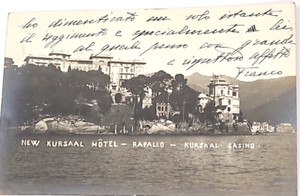 ho dimenticato mai un solo istante
il soggiorno e specialmente Lei
al quale penso con grande
e rispettoso affetto
Franco
NEW KURSAAL HÔTEL - RAPALLO - KURSAAL CASINO